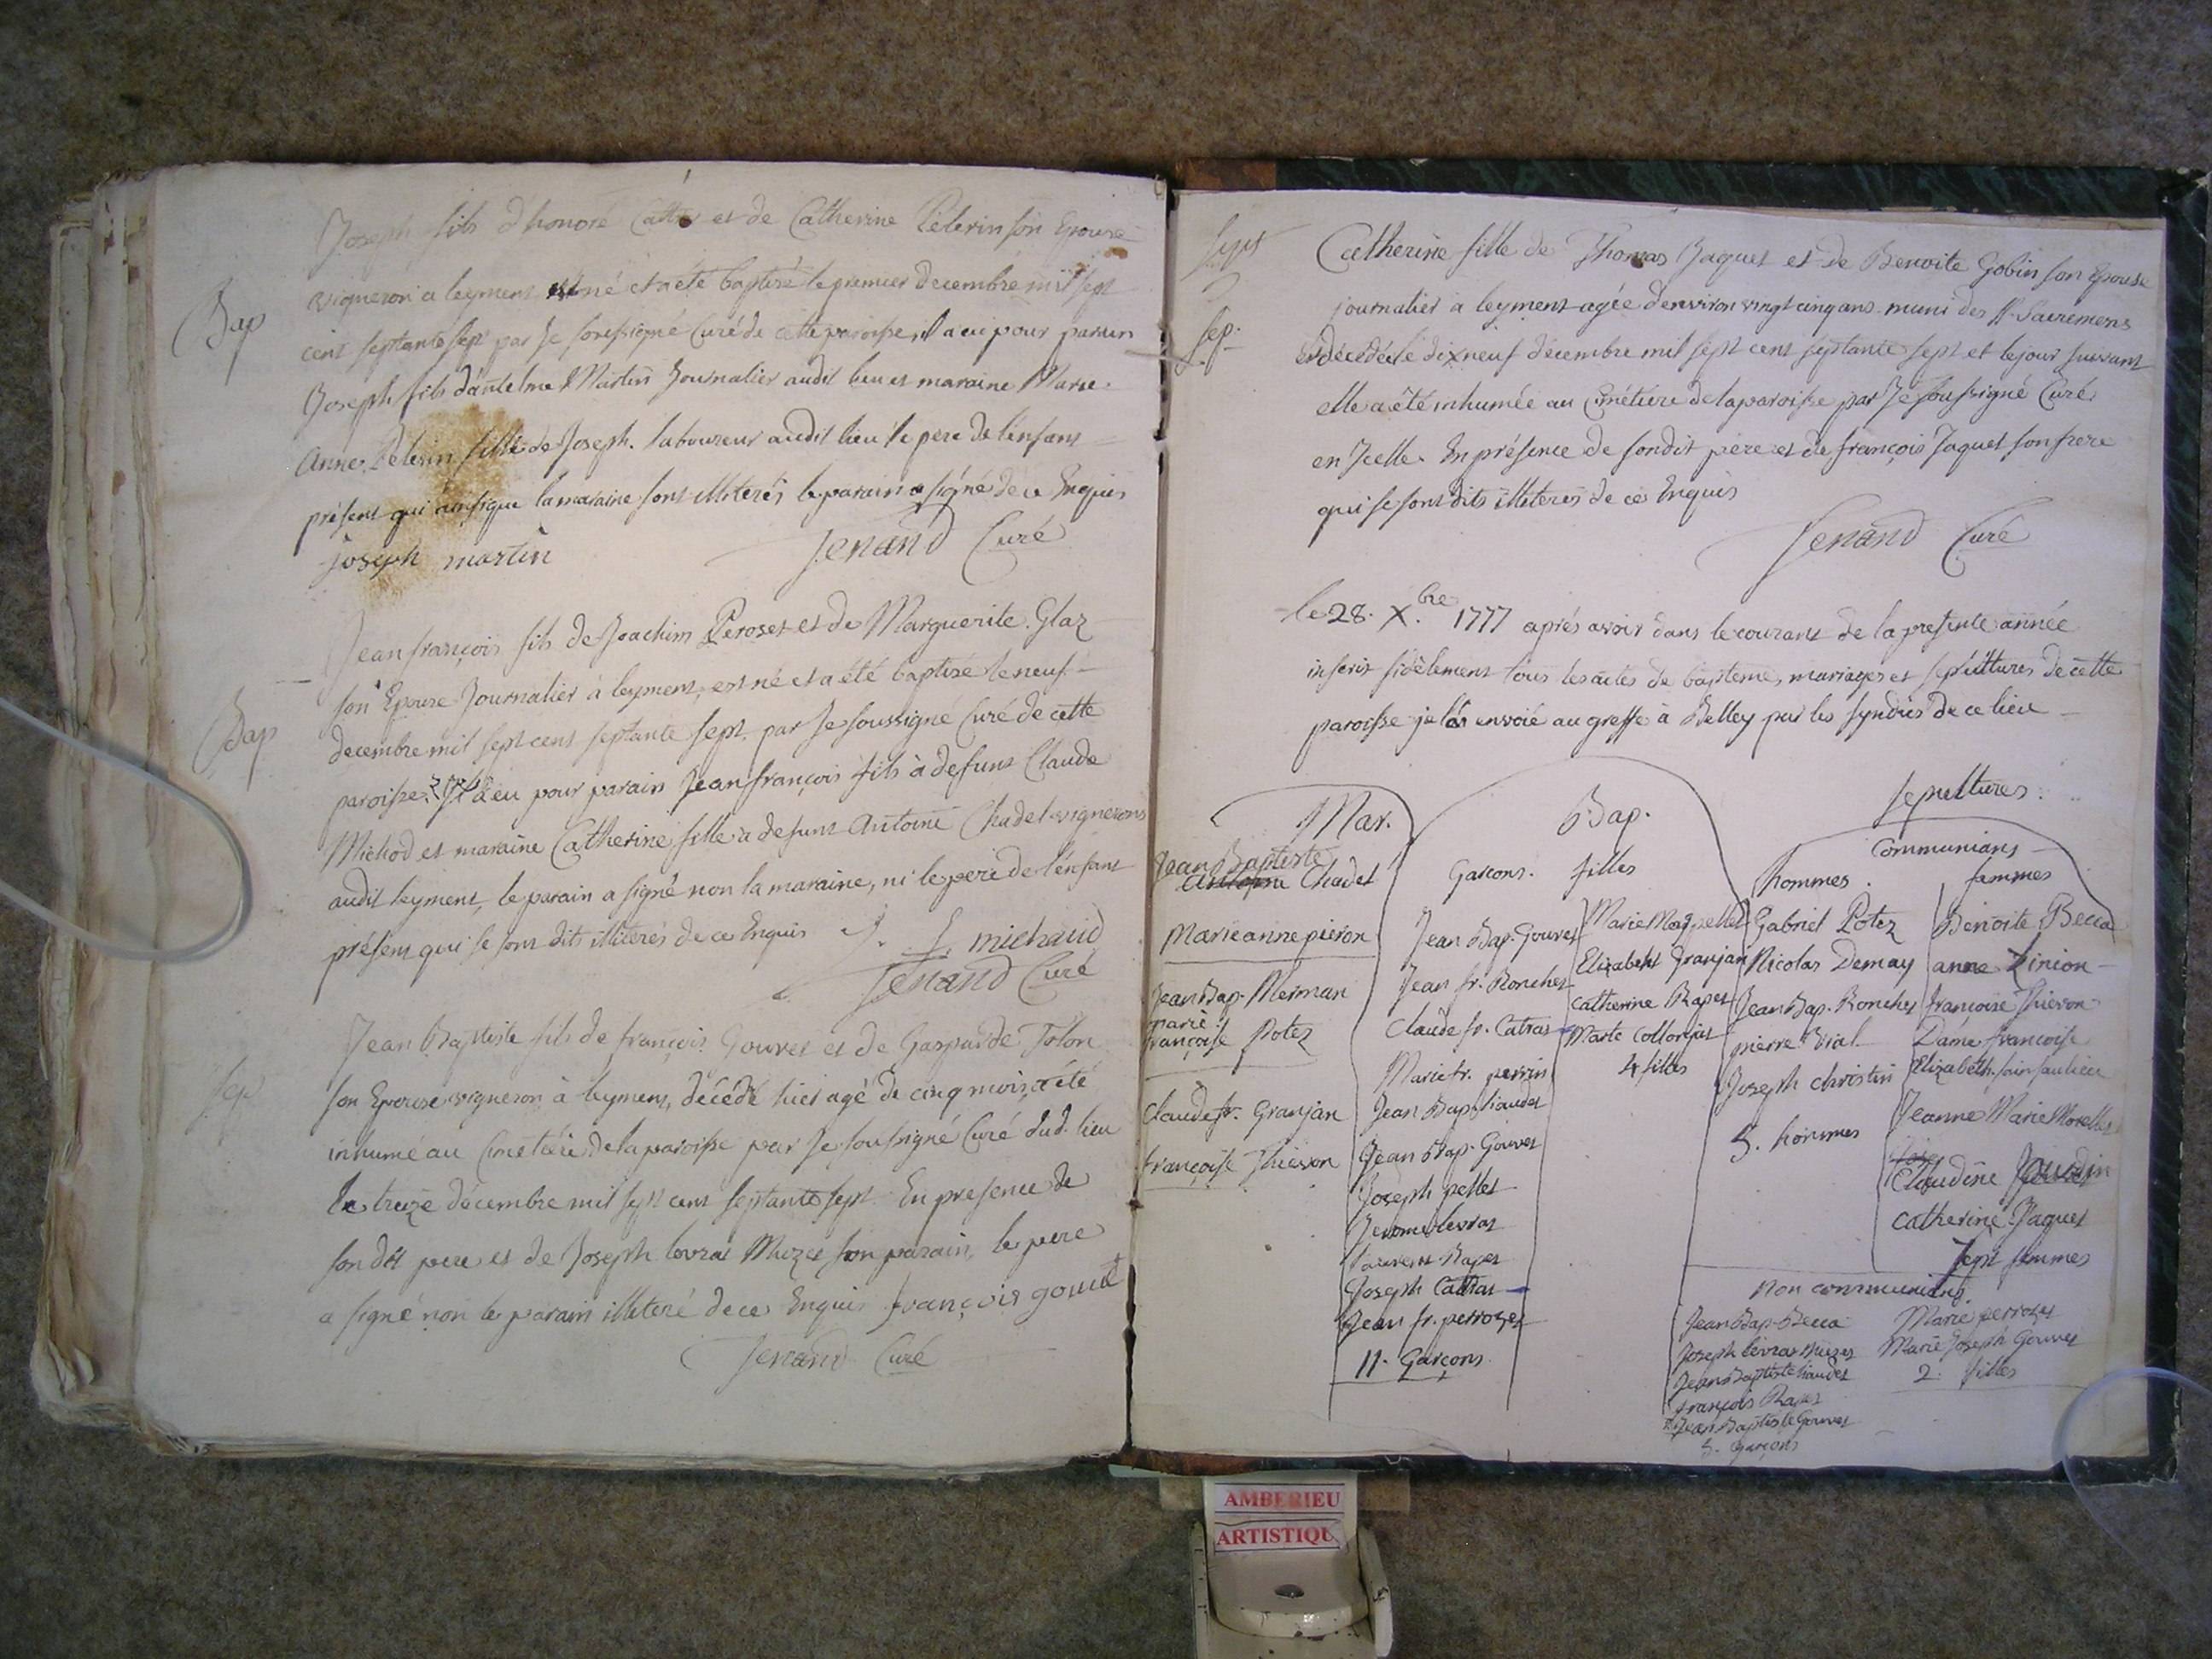 Joseph fils d'honoré et de Catherine Pélerin son Epouse
Bap
vigneron a leyment est né et a été baptisé le premier decembre mil sept
cent septante sept par Je soussigné Curé de cette paroisse, il a eu pour parain
Joseph fils d'antelme Martin Journalier audit lieu et maraine Marie
Anne Pelerin fille de Joseph laboureur audit lieu le pere de l'enfant
présent qui ainsi que la maraine sont illiterés le parain a signé de ce Enquis
joseph martin Jenand Curé
Jean françois fils de Joachim Peroset et de Marguerite Glaz
son Epouse Journalier à leyment, est né et a été baptisé le neuf
Bap
decembre mil sept cent septante sept par Je soussigné Curé de cette
paroisse. Il a eu pour parain Jean françois fils à defunt Claude
Michod et maraine Catherine fille a defunt Antoine Chudet vignerons
audit leyment, le parain a signé non la maraine, ni le pere de l'enfant
présent qui se sont dits illiterés de ce Enquis J. f. michaud
Jenand Curé
Jean Baptiste fils de françois Gouvet et de Gasparde Tolon
Sep
son Epouse vigneron à leyment, décédé hier agé de cinq mois, a été
inhumé au Cimetière de la paroisse par Je soussigné Curé dud. lieu
le treize décembre mil sept cent septante sept. En presence de
son dit pere et de Joseph levrat Muzet son parain, le pere
a signé non le parain illiteré de ce Enquis françois gouvet
Jenand Curé
Sept
Catherine fille de Thomas Jaquet et de Benoite Gobin son Epouse
journalier a leyment agée d'environ vingt cinq ans munis des Sts Sacremens
Sep.
est décédée le dixneuf décembre mil sept cent septante sept et le jour suivant
elle a été inhumée au cimétière de la paroisse par Je soussigné Curé
en Icelle. En présence de sondit père et de françois Jaquet son frere
qui se sont dits illiterés de ce Enquis
Jenand Curé
le 28. Xbre 1777 après avoir dans le courant de la presente année
inscrit fidèlement tous les actes de baptême, mariages et sépultures de cette
paroisse je les ai envoié au greffe à Belley par les syndics de ce lieu
Mar. Bap. sepultures.
Communians
Garcons. filles hommes. femmes
Jean Baptiste
Antoine Chudet
Marie anne pieron
Jean Bap. Merman
marie
françoise Potez
Claude fr. Granjan
françoise Thievon
Jean Bap. Gouvet
Jean fr. Ronchet
Claude fr. Catras
Marie fr. perrin
Jean Bap. liaudet
Jean Bap. Gouvet
Joseph pellet
Jerome levrat
Laurent Rapet
Joseph Cattras
Jean fr. perrozet
11. Garçons
Elizabeth Granjan
Catherine Rapet
Marte Collonjat
4 filles
Gabriel Potez
Nicolas Demay
Jean Bap. Ronchet
pierre Vial
Joseph christin
5. hommes
Benoite Becca
anne Zinion
françoise Thievon
Dame francoise
Elizabeth sain saulieu
Jeanne Marie Morellet
Claudine
Catherine Jaquet
Sept femmes
Non communians
Jean Bap. Becca
Joseph levrat Muzet
Jean Baptiste liaudet
françois Rapet
Jean Baptiste Gouvet
5. garçons
Marie perrozet
Marie Joseph Gouvet
2. filles
AMBERIEU
ARTISTIQU